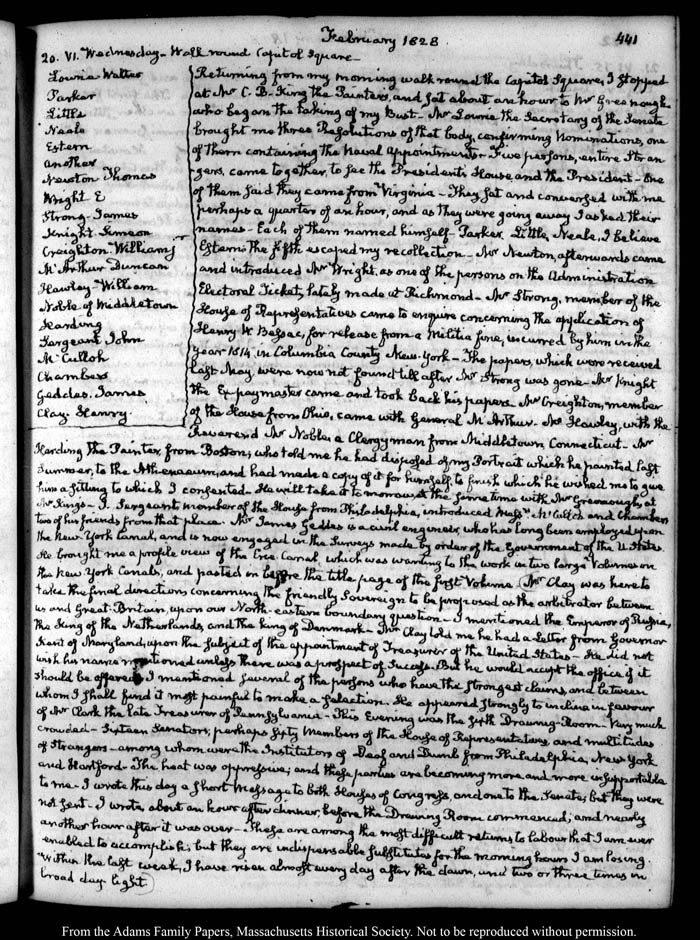 February 1828
441
20. VI. Wednesday - Walk round Capitol Square -
Lowrie Walter
Parker
Little
Neale
Estern
another
Newton Thomas
Wright E
Strong - James
Knight - Simeon
Creighton - William J
McArthur Duncan
Hawley - William
Noble of Middletown
Harding
Sergeant John
McCulloh
Chambers
Geddes. James
Clay. Henry.
Returning from my morning walk round the Capitol Square, I stopped
at Mr C. B. King the Painter's, and sat about an hour to Mr Greenough
who began the taking of my Bust - Mr Lowrie the Secretary of the Senate
brought me three Resolutions of that body, confirming Nominations, one
of them containing the Naval appointments - Five persons, entire Stran-
gers, came together, to see the President's House, and the President - One
of them said they came from Virginia - They sat and conversed with me
perhaps a quarter of an hour, and as they were going away I asked their
names - Each of them named himself - Parker, Little, Neale, I believe
Estern: the fifth escaped my recollection - Mr Newton, afterwards came
and introduced Mr Wright, as one of the persons on the Administration
Electoral Ticket, lately made at Richmond - Mr Strong, member of the
House of Representatives came to enquire concerning the application of
Henry W. Bessac, for release from a Militia fine, incurred by him in the
year 1814 in Columbia County New-York - The papers, which were received
last May, were now not found till after Mr Strong was gone - Mr Knight
the Ex-paymaster came and took back his papers - Mr Creighton, member
of the House from Ohio, came with General McArthur - Mr Hawley, with the
Reverend Mr Noble, a Clergyman from Middletown, Connecticut - Mr
Harding the Painter, from Boston; who told me he had disposed of my Portrait which he painted last
Summer, to the Athenaeum; and had made a copy of it for himself, to finish which he wished me to give
him a sitting to which I consented - He will take it to-morrow at the same time with Mr Greenough, at
Mr King's - J. Sergeant member of the House from Philadelphia, introduced Messrs McCulloh and Chambers
two of his friends from that place. Mr James Geddes is a civil engineer, who has long been employed upon
the New York Canal, and is now engaged in the Surveys made by order of the Government of the U. States.
He brought me a profile view of the Erie Canal which was wanting to the work in two large Volumes on
the New York Canals, and pasted in before the title page of the first Volume. Mr Clay was here to
take the final directions concerning the friendly Sovereign to be proposed as the arbitrator between
us and Great-Britain, upon our North-eastern boundary question - I mentioned the Emperor of Russia,
the King of the Netherlands, and the King of Denmark - Mr Clay told me he had a Letter from Governor
Kent of Maryland, upon the subject of the appointment of Treasurer of the United States - He did not
wish his name mentioned unless there was a prospect of success. But he would accept the office if it
should be offered. I mentioned several of the persons who have the strongest claims, and between
whom I shall find it most painful to make a selection. He appeared strongly to incline in favour
of Mr Clark the late Treasurer of Pennsylvania - This Evening was the Drawing-Room. Very much
crowded - Sixteen Senators; perhaps sixty Members of the House of Representatives, and multitudes
of Strangers - among whom were the Institutors of Deaf and Dumb from Philadelphia, New York
and Hartford - The heat was oppressive; and these parties are becoming more and more insupportable
to me - I wrote this day a short Message to both Houses of Congress, and one to the Senate; but they were
not sent - I wrote about an hour after dinner, before the Drawing Room commenced; and nearly
another hour after it was over - These are among the most difficult returns to labour that I am ever
enabled to accomplish; but they are indispensable substitutes for the morning hours I am losing.
Within the last week, I have risen almost every day after the dawn, and two or three times in
broad day light.
From the Adams Family Papers, Massachusetts Historical Society. Not to be reproduced without permission.